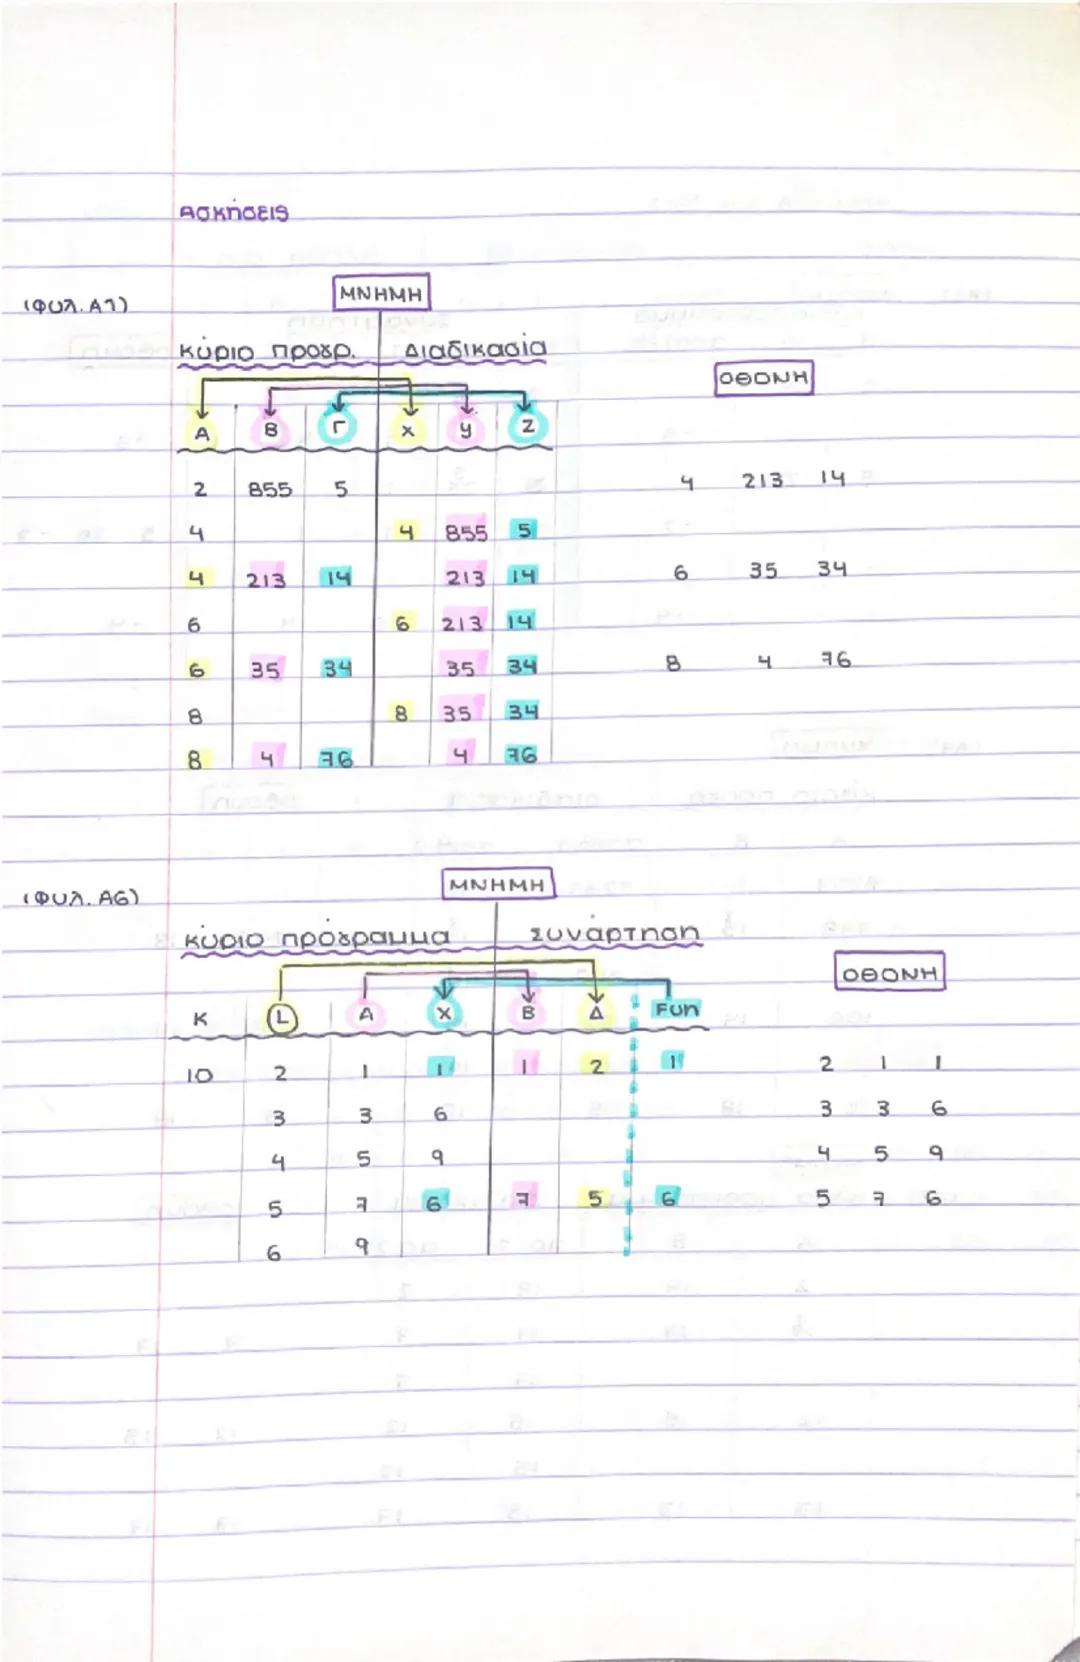 Ασκήσεις
(Φυλ. Α1)
ΜΝΗΜΗ
κύριο προγρ. Διαδικασία
ΟΘΟΝΗ
Α Β Γ Χ Υ Ζ
2 855 5 4 213 14
4 4 855 5
4 213 14 213 14 6 35 34
6 6 213 14
6 35 34 35 34 8 4 76
8 8 35 34
8 4 76 4 76
(Φυλ. Α6)
ΜΝΗΜΗ
κύριο πρόγραμμα Συνάρτηση
ΟΘΟΝΗ
Κ L Α Χ Β Δ Fun
10 2 1 1 1 2 1 2 1 1
3 3 6 3 3 6
4 5 9 4 5 9
5 7 6 7 5 6 5 7 6
6 9